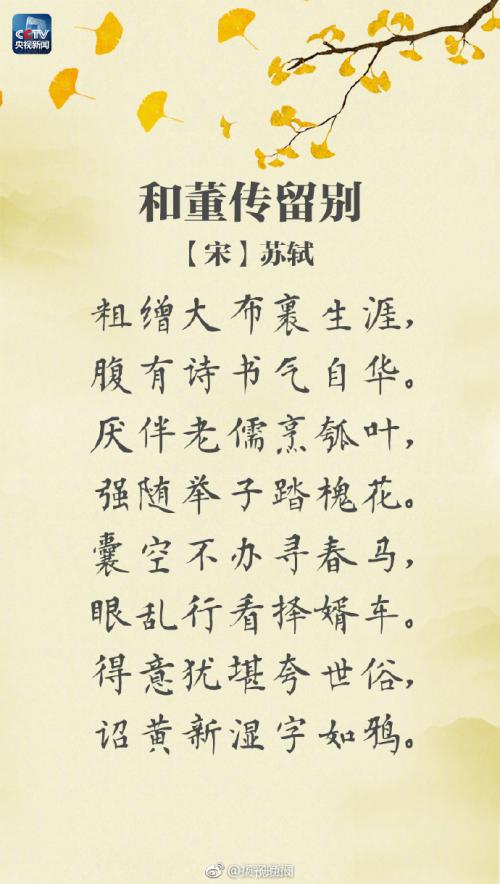 CCTV
央视新闻
和董传留别
【宋】苏轼
粗缯大布裹生涯，
腹有诗书气自华。
厌伴老儒烹瓠叶，
强随举子踏槐花。
囊空不办寻春马，
眼乱行看择婿车。
得意犹堪夸世俗，
诏黄新湿字如鸦。